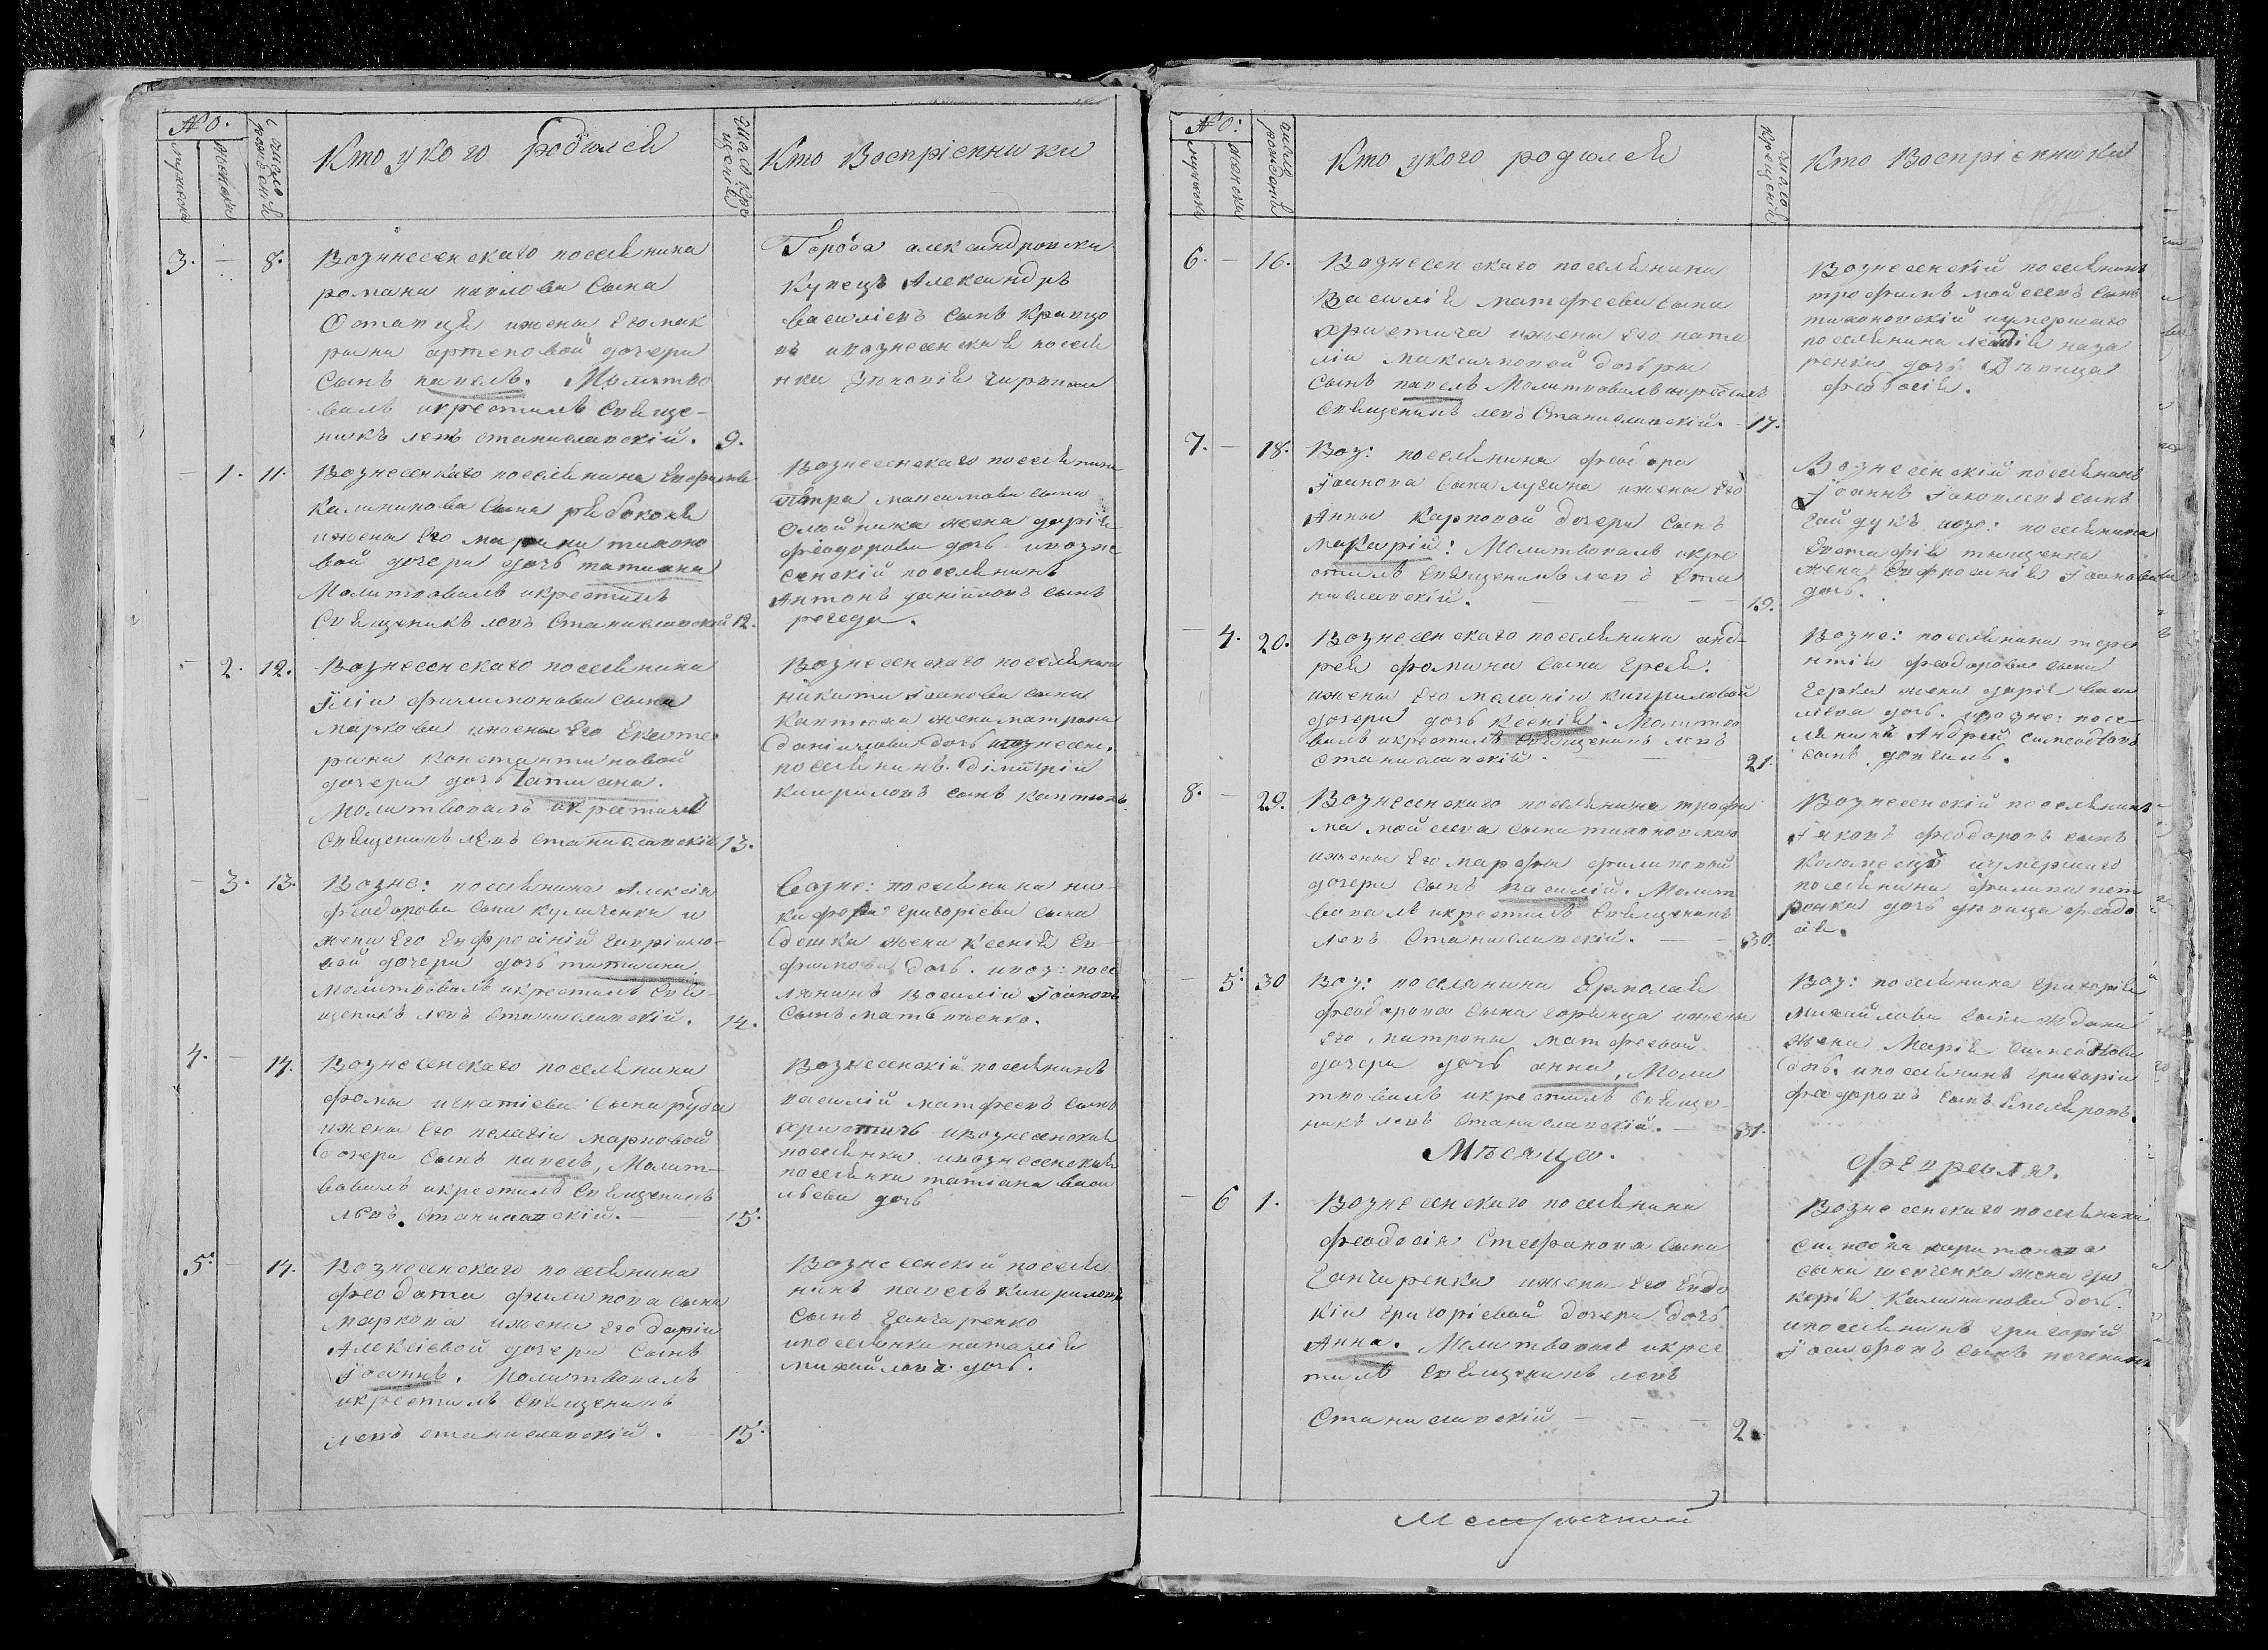 №.
мужеска
женска
число рожденій
Кто у кого родился
число крещенія
Кто Воспріемники
3. — 8.
Вознесенскаго поселянина
романа павлова сына
Остапця и жены Его мак
рины артемовой дочери
сынъ павелъ. Молитво
валъ и крестилъ Священ-
никъ левъ станиславскій. 9.
Города александровска
Купецъ Александръ
василіевъ сынъ Кравцо
въ и вознесенская поселя
нка
— 1. 11.
Вознесенскаго поселянина Евфимія
Калиникова сына рябоконя
и жены Его марины тихоно
вой дочери дочь татиана
Молитвовалъ и крестилъ
Священикъ левъ Станиславскій 12.
Вознесенскаго поселянина
петра максимова сына
Олійника жена дарія
феодорова дочь и возне
сенскій поселянинъ
Антонъ даніиловъ сынъ
регеда.
— 2. 12.
Вознесенскаго поселянина
Іліи филимонова сына
маркова и жены Его Екате
рины константиновой
дочери дочь татиана.
Молитвовалъ и крестилъ
Священикъ левъ Станиславскій 13.
Вознесенскаго поселянина
никиты Іоанова сына
Каптюха жена матрона
даніилова дочь и вознесен.
поселянинъ димитрій
кириловъ сынъ каптюхъ.
— 3. 13.
Возне: поселянина Алексія
феодорова сына куличенка и
жены Его Евфросиніи Гавріило-
вой дочери дочь татиана.
Молитвовалъ и крестилъ Свя-
щеникъ левъ Станиславскій. 14.
Возне: поселянина ни-
кифора григоріева сына
дешка жена Ксенія Ев-
фимова дочь. и воз: посе
лянинъ Василій Іоановъ
сынъ матвіенко.
4. — 14.
Вознесенскаго поселянина
фомы игнатіева сына руды
и жены Его пелагіи марковой
дочери сынъ павелъ, Молит-
вовалъ и крестилъ Священикъ
левъ. Станиславскій. 15.
Вознесенскій поселянинъ
василій матфеевъ сынъ
христичъ и вознесенская
поселянка и вознесенская
поселянка татіана васи
льева дочь
5. — 14.
Вознесенскаго поселянина
феодота филипова сына
маркова и жены Его даріи
Алексіевой дочери сынъ
Іоаннъ. Молитвовалъ
и крестилъ Священикъ
левъ станиславскій. 15.
Вознесенскій поселя
нинъ павелъ Кириловъ
сынъ Ганчаренко
и поселянка наталія
михайлова дочь.
№:
мужеска
женска
число рожденій
Кто у кого родился
число крещеній
Кто Воспріемники
6. — 16.
Вознесенскаго поселянина
Василія матфеева сына
христича и жены Его ната
ліи максимовой дочеры
сынъ павелъ Молитвовалъ и крестилъ
Священикъ левъ Станиславскій. 17.
Вознесенскій поселянинъ
трофимъ мойсеевъ сынъ
тихоновскій и умершаго
поселянина назаренка дочь Дѣвица
феодосія.
7. — 18.
Воз: поселянина феодора
Іоанова сына и жены Его
Анны Карповой дочери сынъ
Макарій: Молитвовалъ и кре
стилъ Священикъ левъ Ста
ниславскій. — — — 19.
Вознесенскій поселянинъ
Іоаннъ Іаковлевъ сынъ
Гайдукъ и воз: поселянина
Евстафія тищенка
жена Евфросинія Іоанова
дочь.
— 4. 20.
Вознесенскаго поселянина анд-
рея фомина сына
и жены Его меланіи кириловой
дочери дочь Ксенія. Молитво
валъ и крестилъ Священикъ левъ
станиславскій. — — — 21.
Возне: поселянина тере
нтія феодорова сына
жена дарія васи
ліева дочь. и возне: посе-
лянинъ Андрей симеоновъ
сынъ довгаль.
8. — 29.
Вознесенскаго поселянина трофи
ма мойсеева сына тихоновскаго
и жены Его марфы филиповой
дочери сынъ василій. Молит
вовалъ и крестилъ Священикъ
левъ Станиславскій. — — 30.
Вознесенскій поселянинъ
Іяковъ феодоровъ сынъ
Коломеецъ и умершаго
поселянина филипа пет
ренка дочь дѣвица феодо
сія.
— 5. 30
Воз: поселянина Ермолая
феодорова сына и жены
Его матроны матфеевой
дочери дочь анна. Моли
твовалъ и крестилъ Священ-
никъ левъ Станиславскій. — 31.
Воз: поселянина григорія
михайлова сына ждана
жена Марія симеонова
дочь. и поселянинъ григорій
феодоровъ сынъ
Мѣсяца.
февраля.
— 6 1.
Вознесенскаго поселянина
феодосія Стефанова сына
Ганчаренка и жены Его Евдо
кіи григоріевой дочери дочь
Анна. Молитвовалъ и крес
тилъ Священикъ левъ
Станиславскій — — — 2.
Вознесенскаго поселянина
симеона харитонова
сына шевченка жена гли
керія Калиникова дочь.
и поселянинъ григорій
Іосифовъ сынъ
Метричной